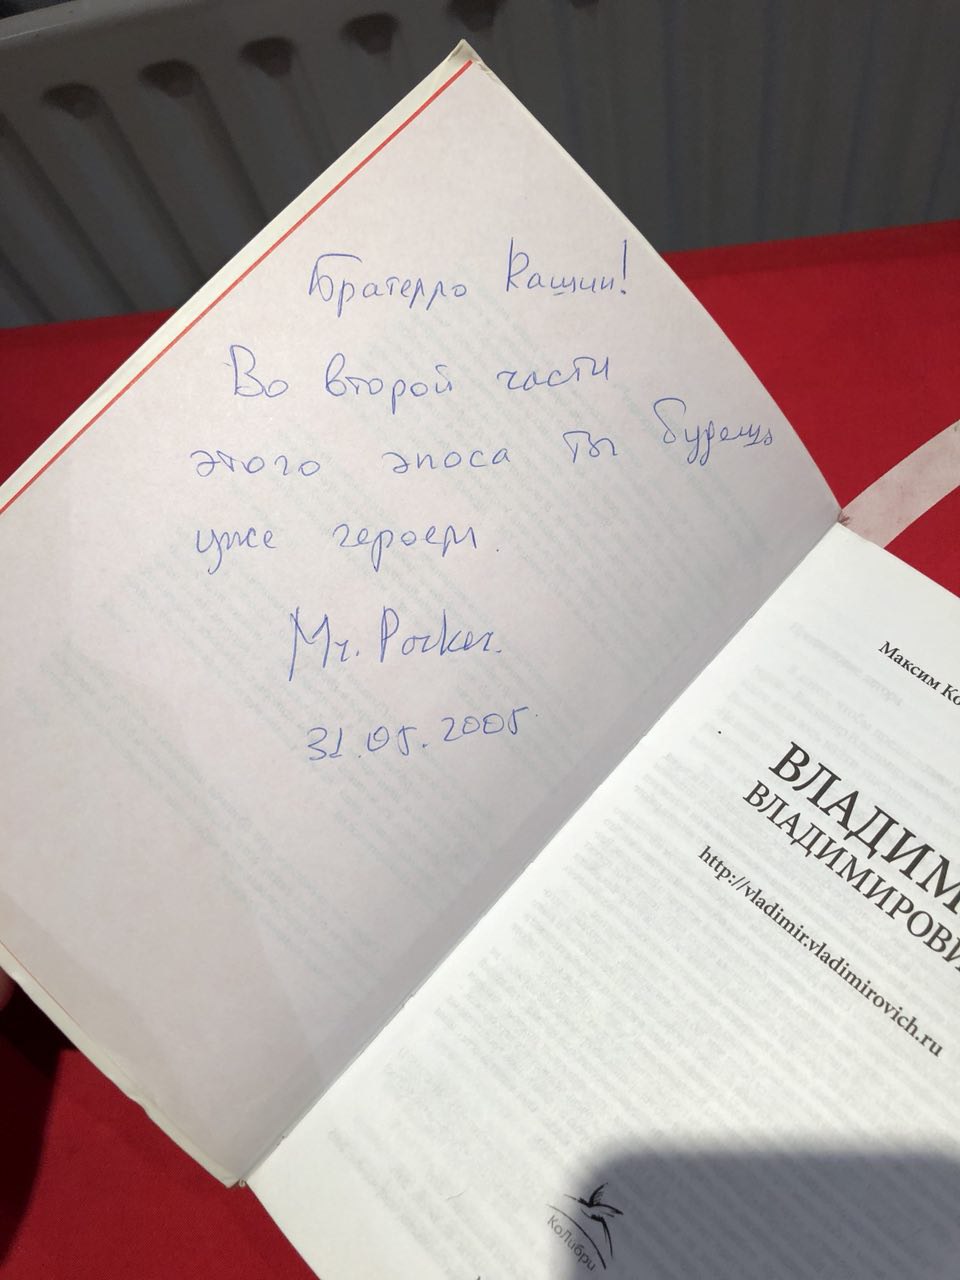 Братерло Кашин!
Во второй части
этого эпоса ты будешь
уже героем.
Mr. Parker.
31.05.2005.
Максим Ко
ВЛАДИМ
ВЛАДИМИРОВИ
http://vladimir.vladimirovich.ru
КоЛибри